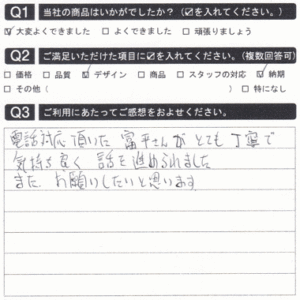 Q1 当社の商品はいかがでしたか？（☑を入れてください。）
☑大変よくできました □よくできました □頑張りましょう
Q2 ご満足いただけた項目に☑を入れてください。（複数回答可）
□価格 □品質 ☑デザイン □商品 □スタッフの対応 ☑納期
□その他（ ） □特になし
Q3 ご利用にあたってご感想をおよせください。
電話対応頂いた 富平さんが とても丁寧で
気持ち良く 話を進められました
また お願いしたいと思います